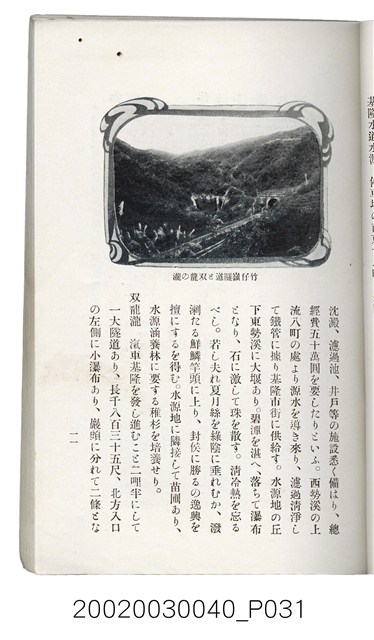 竹仔嶺隧道と双龍の瀧
沈澱、濾過池、井戸等の施設悉く備はり、總
經費五十萬圓を要したりといふ。西勢溪の上
流八町の處より源水を導き來り、濾過淸淨し
て鐵管に據り基隆市街に供給す。水源地の丘
下東勢溪に大堰あり。碧潭を湛へ、落ちて瀑布
となり、石に激して珠を散す。淸冷熱を忘る
べし。若し夫れ夏月絲を綠陰に垂れむか、潑
溂たる鮮鱗竿頭に上り、封侯に勝るの逸興を
擅にするを得む。水源地に隣接して苗圃あり、
水源涵養林に要する稚杉を培養せり。
双龍瀧 滊車基隆を發し進むこと二哩半にして
一大隧道あり、長千八百三十五尺、北方入口
の左側に小瀑布あり、巖頭に分れて二條とな
一一
基隆水道水源
20020030040_P031